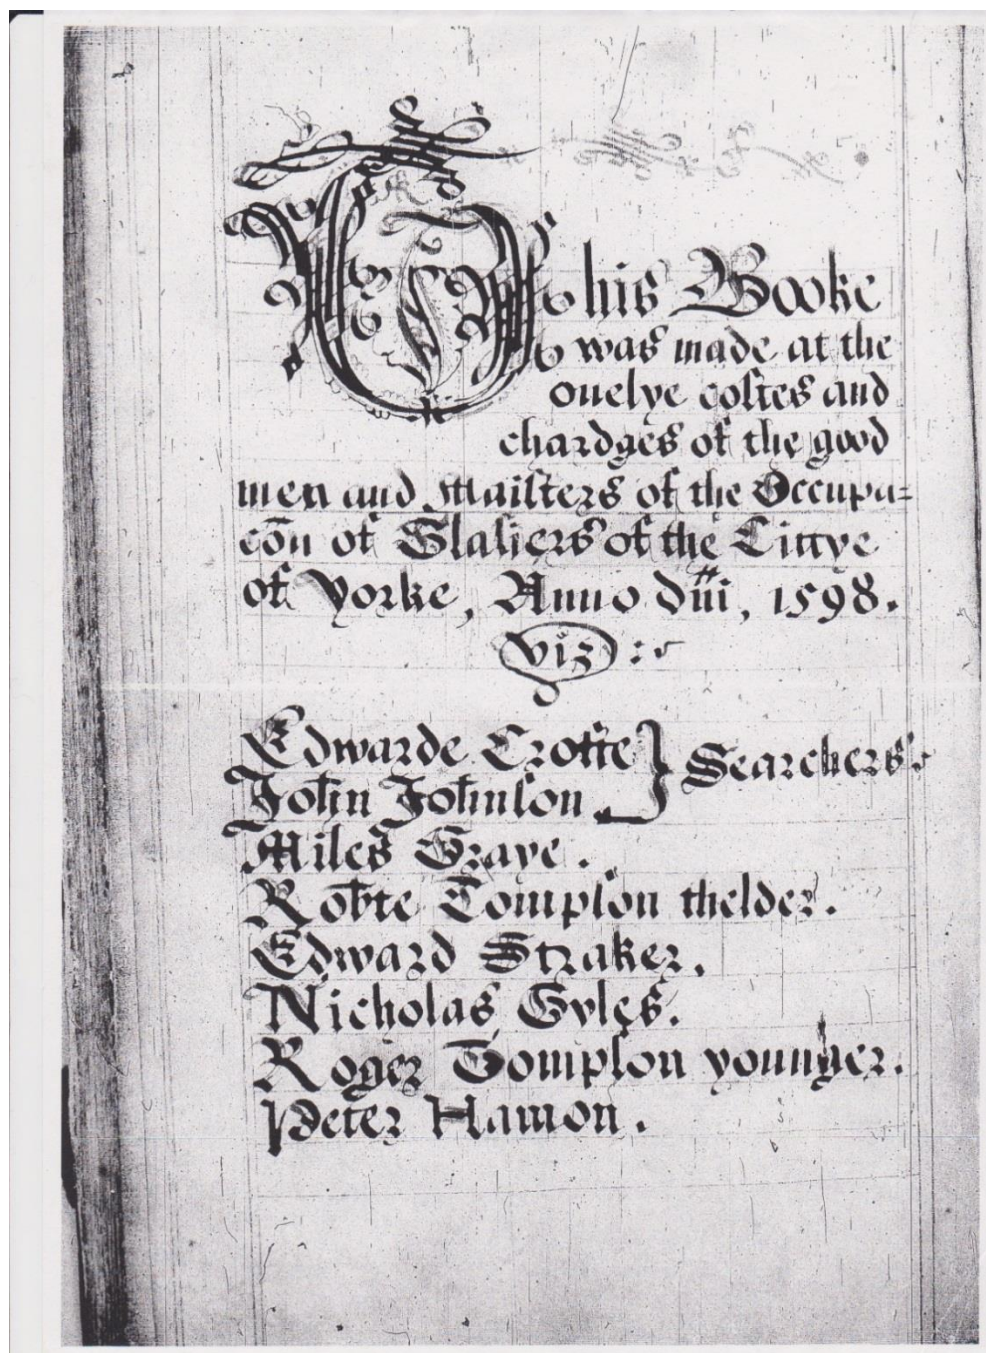 This Booke
was made at the
onelye costes and
chardges of the good
men and Maisters of the Occupa=
cõn of Glasiers of the Cittye
of Yorke, Anno Dñi, 1598.
viz:
Edwarde Crofte } Searchers
John Johnson
Miles Graye.
Robte Tompson thelder.
Edward Straker.
Nicholas Gyles.
Roger Tompson younger.
Peter Hamon.